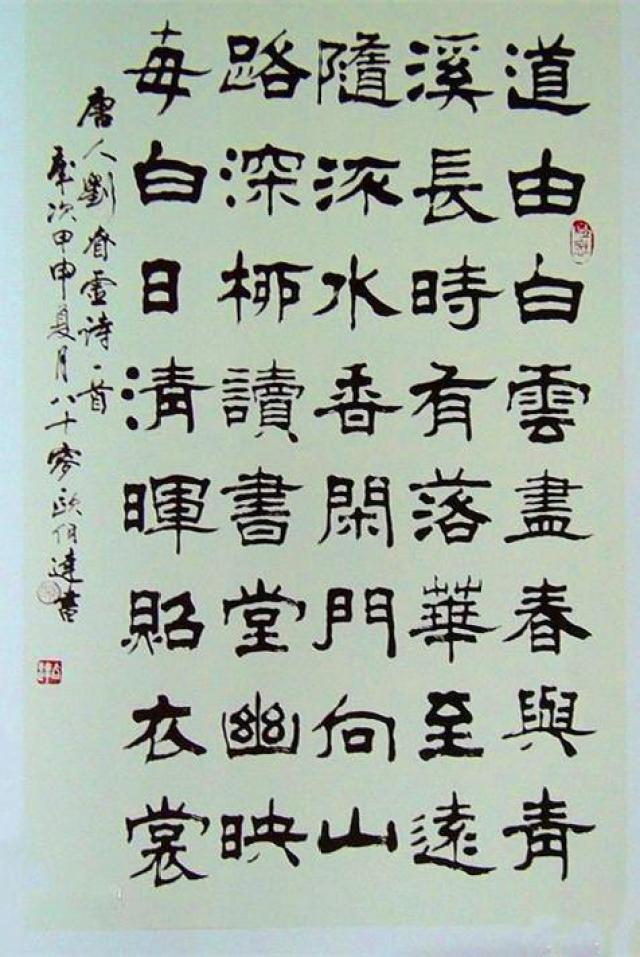 道由白雲盡春與青
溪長時有落華至遠
隨流水香閑門向山
路深柳讀書堂幽映
每白日清暉照衣裳
唐人劉眘虚诗一首
歲次甲申夏月八十零欧伯達書